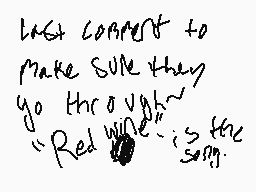 Last comment to
make sure they
go through~
"Red wine" - is the
song.